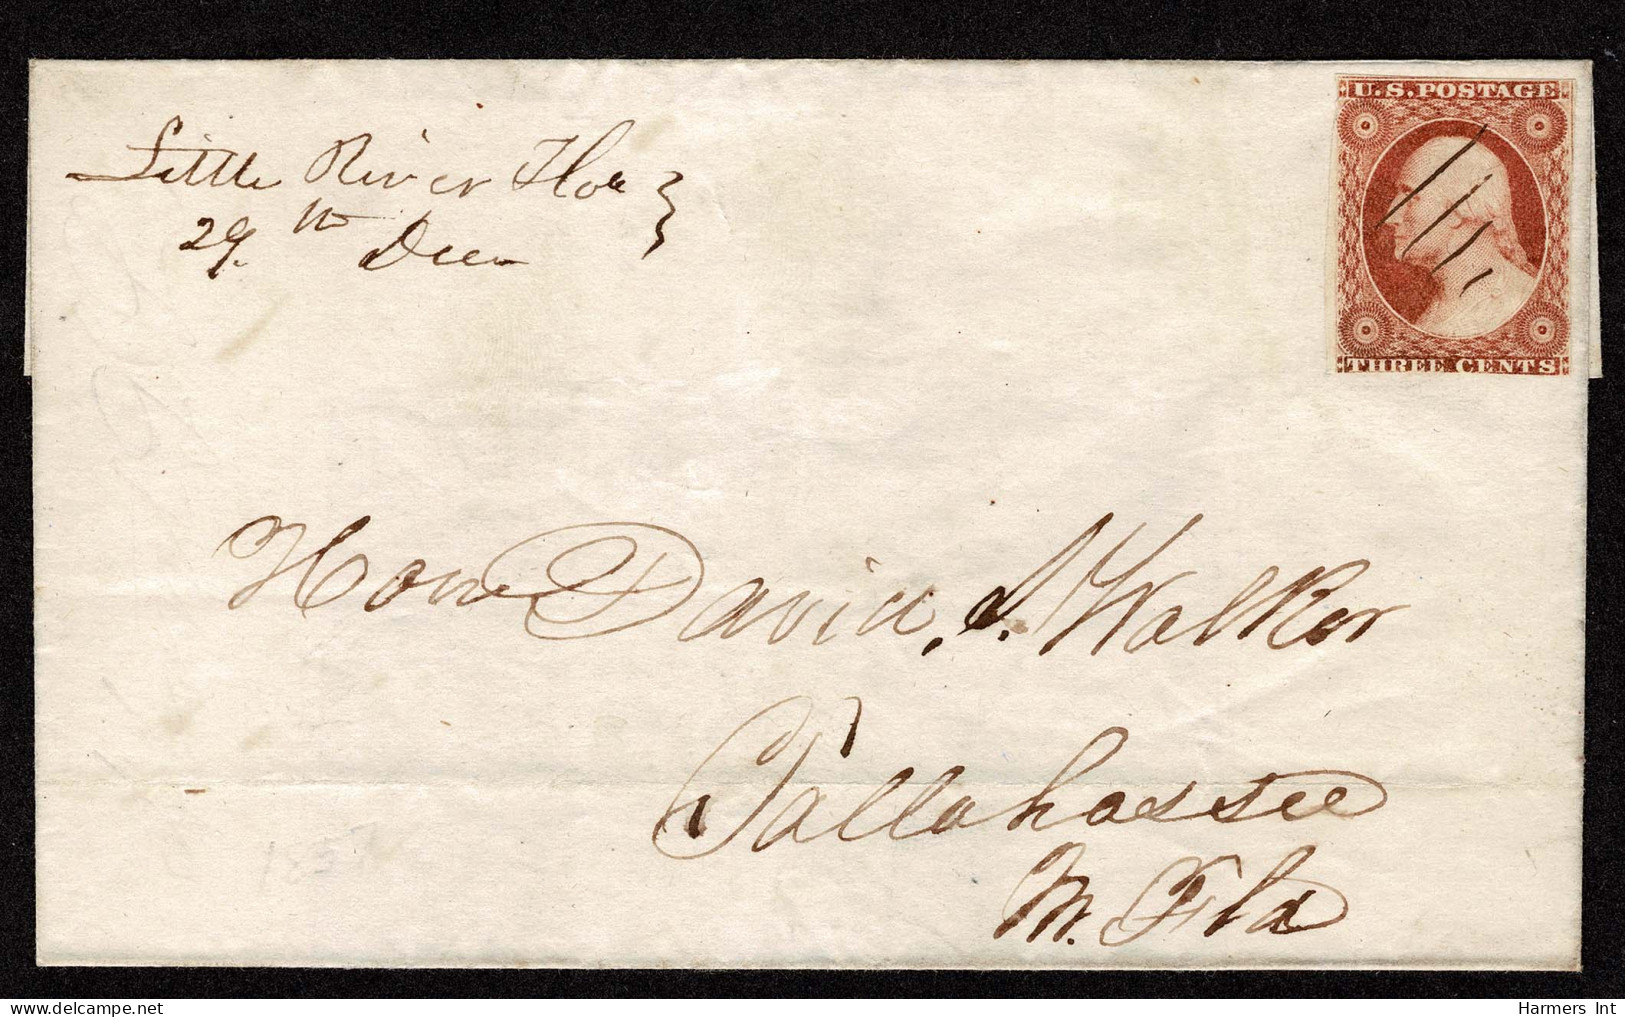 Little River Floa
29th Decr
U.S. POSTAGE
THREE CENTS
Hon David. S. Walker
Tallahassee
M. Fla
1857
Harmers Int